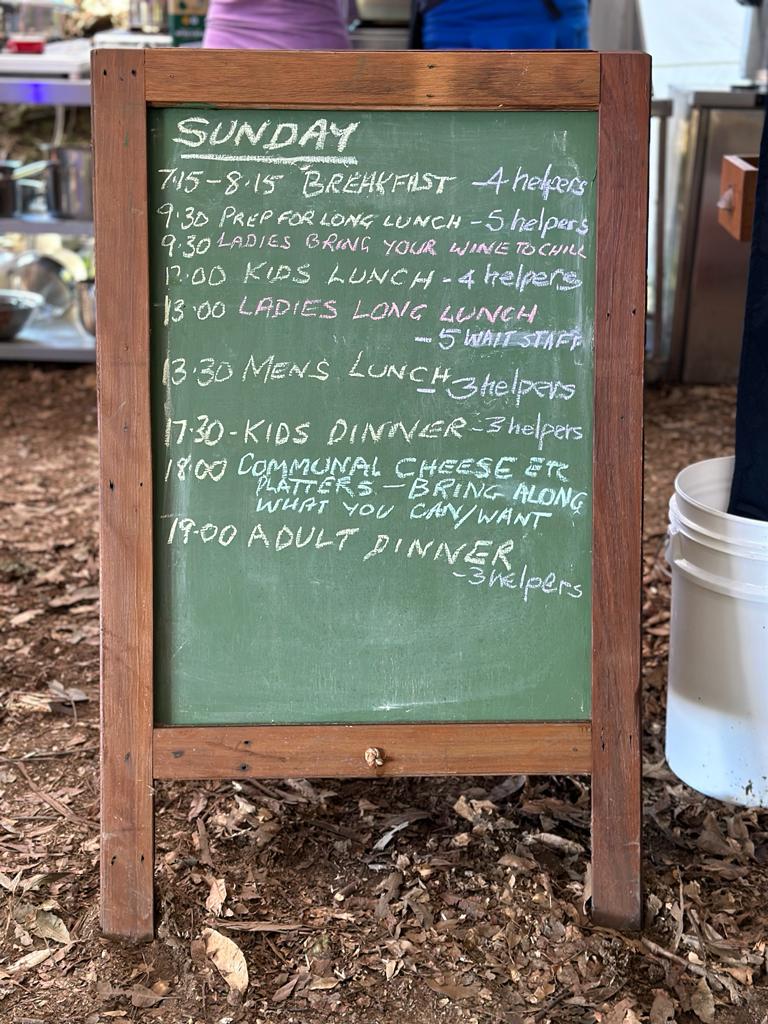 SUNDAY
7.15-8.15 BREAKFAST -4 helpers
9.30 PREP FOR LONG LUNCH -5 helpers
9.30 LADIES BRING YOUR WINE TO CHILL
12.00 KIDS LUNCH -4 helpers
13.00 LADIES LONG LUNCH
-5 WAIT STAFF
13.30 MENS LUNCH
-3 helpers
17.30-KIDS DINNER-3 helpers
18.00 COMMUNAL CHEESE ETC
PLATTERS - BRING ALONG
WHAT YOU CAN/WANT
19.00 ADULT DINNER
-3 helpers